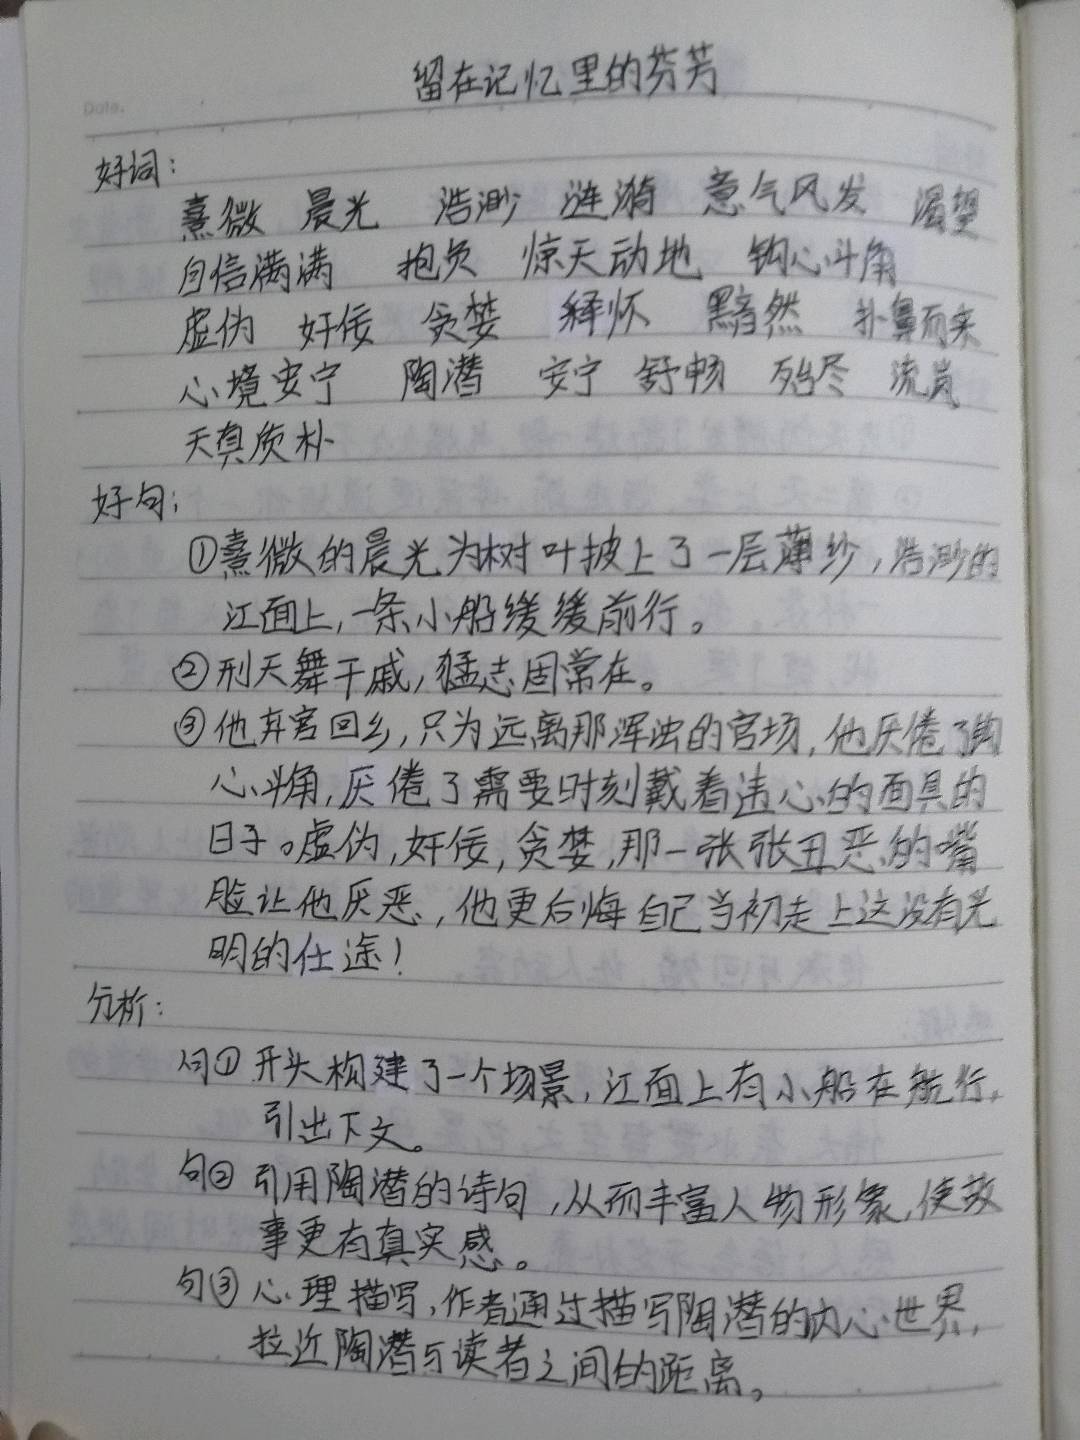 留在记忆里的芬芳
Date.
好词:
熹微 晨光 浩渺 涟漪 意气风发 渴望
自信满满 抱负 惊天动地 钩心斗角
虚伪 奸佞 贪婪 释怀 黯然 扑鼻而来
心境安宁 陶潜 安宁 舒畅 殆尽 流岚
天真质朴
好句;
①熹微的晨光为树叶披上了一层薄纱,浩渺的
江面上,一条小船缓缓前行。
②刑天舞干戚,猛志固常在。
③他弃官回乡,只为远离那浑浊的官场,他厌倦了钩
心斗角,厌倦了需要时刻戴着违心的面具的
日子。虚伪,奸佞,贪婪,那一张张丑恶的嘴
脸让他厌恶,他更后悔自己当初走上这没有光
明的仕途!
分析:
句①开头构建了一个场景,江面上有小船在航行,
引出下文。
句②引用陶潜的诗句,从而丰富人物形象,使故
事更有真实感。
句③心理描写,作者通过描写陶潜的内心世界,
拉近陶潜与读者之间的距离。